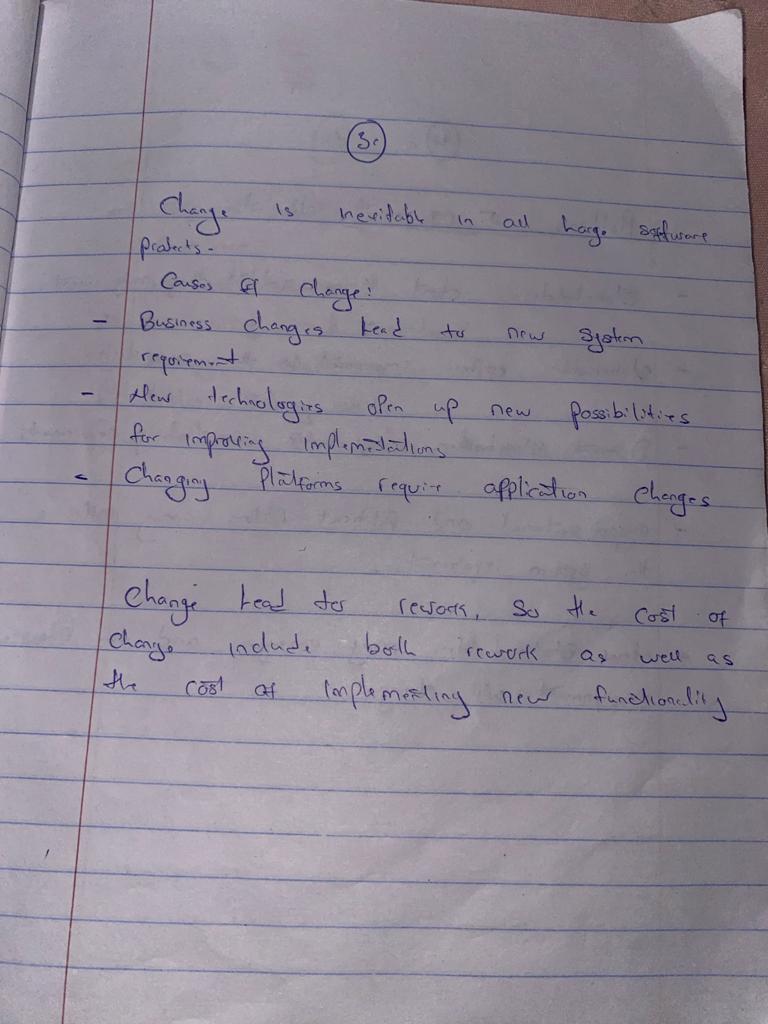 3c
Change is inevitable in all large software
projects.
Causes of change:
- Business changes lead to new system
requirement
- New technologies open up new possibilities
for improving implementations
- Changing Platforms require application changes
Change lead to rework, So the cost of
change include both rework as well as
the cost of implementing new functionality